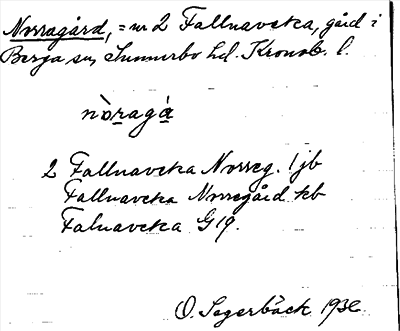 Norragård, = nr 2 Fallnaveka, gård i
Berga sn, Sunnerbo hd. Kronob. l.
nòragá
2 Fallnaveka Norreg. 1 jb
Fallnaveka Norregård kb
Falnaveka G 19.
O. Segerbäck 193